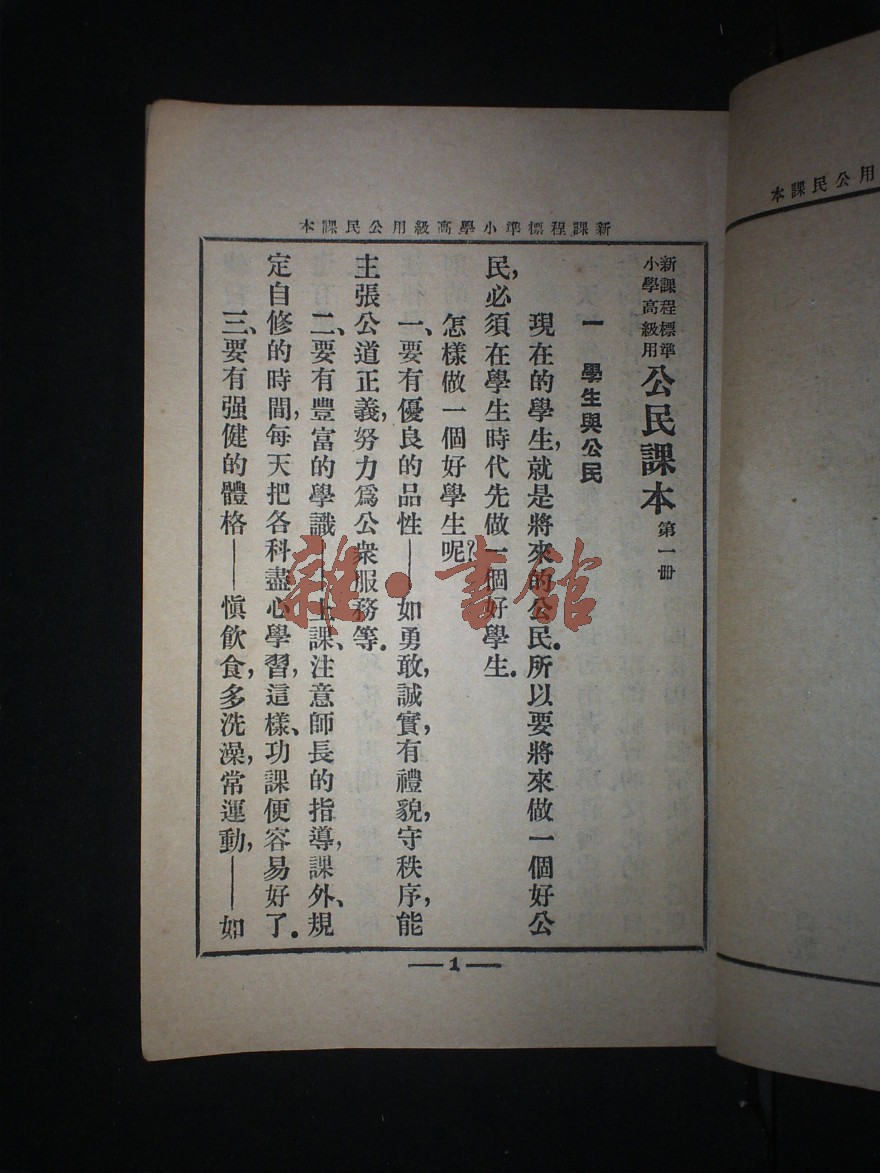 新課程標準小學高級用公民課本
新課程標準
小學高級用
公民課本 第一册
一 學生與公民
現在的學生,就是將來的公民.所以要將來做一個好公
民,必須在學生時代先做一個好學生.
怎樣做一個好學生呢?
一、要有優良的品性——如勇敢,誠實,有禮貌,守秩序,能
主張公道正義,努力爲公衆服務等.
二、要有豐富的學識——上課、注意師長的指導,課外、規
定自修的時間,每天把各科盡心學習,這樣、功課便容易好了.
三、要有强健的體格——慎飲食,多洗澡,常運動,——如
1
用公民課本
雜·書館